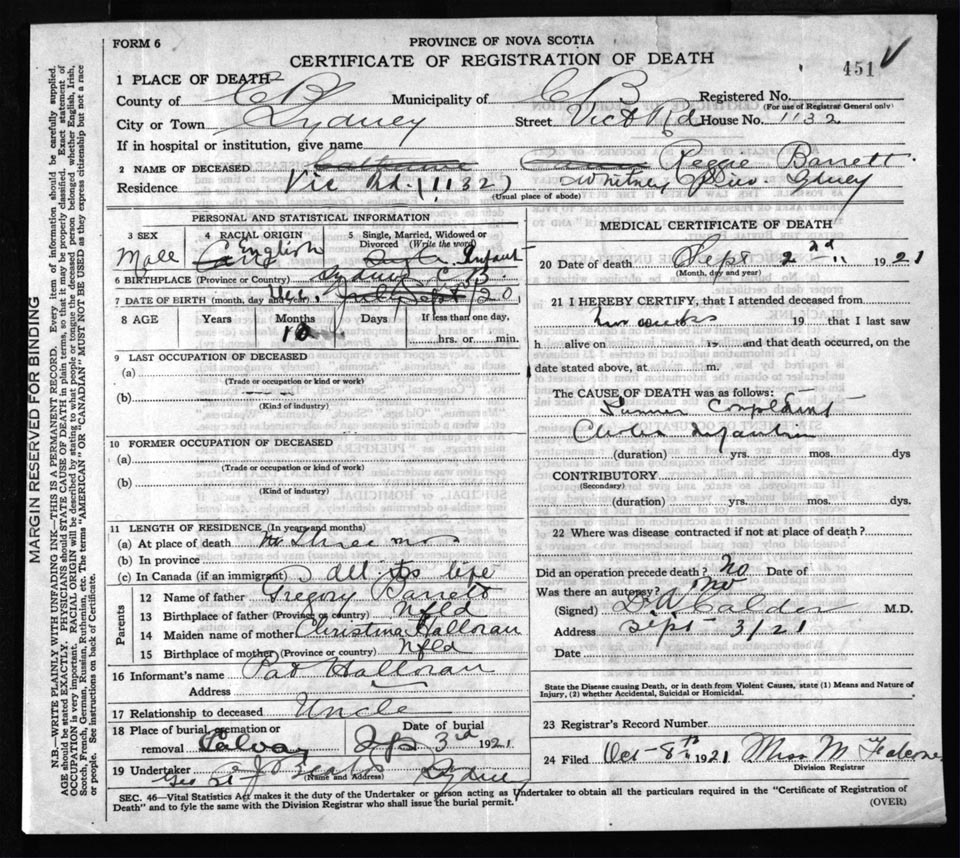 FORM 6
PROVINCE OF NOVA SCOTIA
CERTIFICATE OF REGISTRATION OF DEATH
451
1 PLACE OF DEATH
County of CB Municipality of CB Registered No.
(For use of Registrar General only)
City or Town Sydney Street Vict Rd House No. 1132
If in hospital or institution, give name
2 NAME OF DECEASED Reggie Barrett
Residence Vic Rd. (1132) Whitney Pier Sydney
(Usual place of abode)
PERSONAL AND STATISTICAL INFORMATION
3 SEX 4 RACIAL ORIGIN 5 Single, Married, Widowed or Divorced (Write the word)
Male English Infant
6 BIRTHPLACE (Province or Country) Sydney C.B.
7 DATE OF BIRTH (month, day and year) Sept 20
8 AGE Years Months Days If less than one day,
hrs. or min.
9 LAST OCCUPATION OF DECEASED
(a)
(Trade or occupation or kind or work)
(b)
(Kind of industry)
10 FORMER OCCUPATION OF DECEASED
(a)
(Trade or occupation or kind of work)
(b)
(Kind of industry)
11 LENGTH OF RESIDENCE (In years and months)
(a) At place of death three mos
(b) In province
(c) In Canada (if an immigrant) all its life
Parents
12 Name of father Gregory Barrett
13 Birthplace of father (Province or country) Nfld
14 Maiden name of mother Christina Halloran
15 Birthplace of mother (Province or country) Nfld
16 Informant's name Pat Halloran
Address
17 Relationship to deceased Uncle
18 Place of burial, cremation or removal Date of burial
Sep 3rd 1921
19 Undertaker Sydney
(Name and Address)
MEDICAL CERTIFICATE OF DEATH
20 Date of death Sept 2nd 1921
(Month, day and year)
21 I HEREBY CERTIFY, that I attended deceased from
two weeks 19 that I last saw
h alive on 19 and that death occurred, on the
date stated above, at m.
The CAUSE OF DEATH was as follows:
Summer Complaint
(duration) yrs. mos. dys
CONTRIBUTORY
(Secondary)
(duration) yrs. mos. dys.
22 Where was disease contracted if not at place of death?
Did an operation precede death? No Date of
Was there an autopsy? No
(Signed) D W Calder M.D.
Address Sept 3/21
Date
State the Disease causing Death, or in death from Violent Causes, state (1) Means and Nature of
Injury, (2) whether Accidental, Suicidal or Homicidal.
23 Registrar's Record Number
24 Filed Oct 8th 1921 Miss M
Division Registrar
SEC. 46—Vital Statistics Act makes it the duty of the Undertaker or person acting as Undertaker to obtain all the particulars required in the "Certificate of Registration of
Death" and to fyle the same with the Division Registrar who shall issue the burial permit.
(OVER)
MARGIN RESERVED FOR BINDING
N.B.—WRITE PLAINLY WITH UNFADING INK—THIS IS A PERMANENT RECORD. Every item of information should be carefully supplied.
AGE should be stated EXACTLY. PHYSICIANS should STATE CAUSE OF DEATH in plain terms, so that it may be properly classified. Exact statement of
OCCUPATION is very important. RACIAL ORIGIN will be described by stating to what people or tongue the deceased person belonged whether English, Irish,
Scotch, French, German, Russian, Ruthenian, etc. The terms "AMERICAN" OR "CANADIAN" MUST NOT BE USED as they express citizenship but not a race
or people. See instructions on back of Certificate.